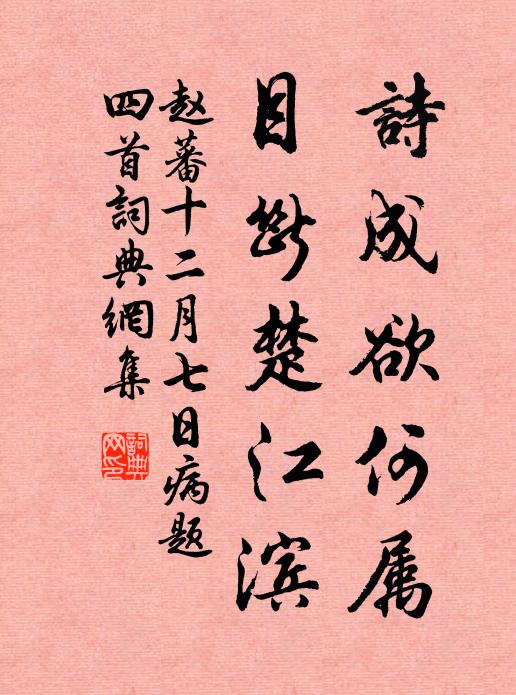 詩成欲何属
目斷楚江滨
赵蕃十二月七日病题
四首詞典網集
詞典網印